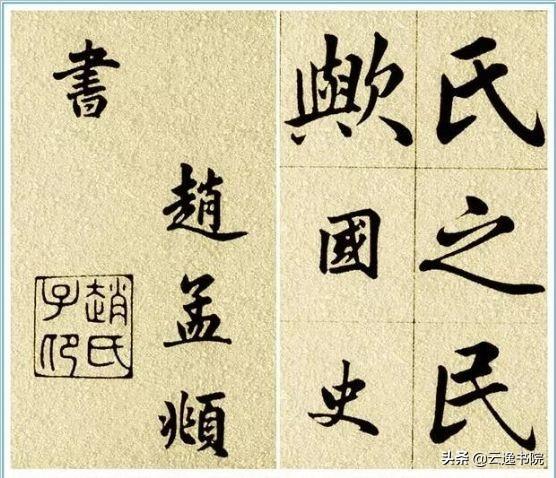 氏之民
歟國史
趙孟頫
書
趙氏
子卬
头条 @云逸书院